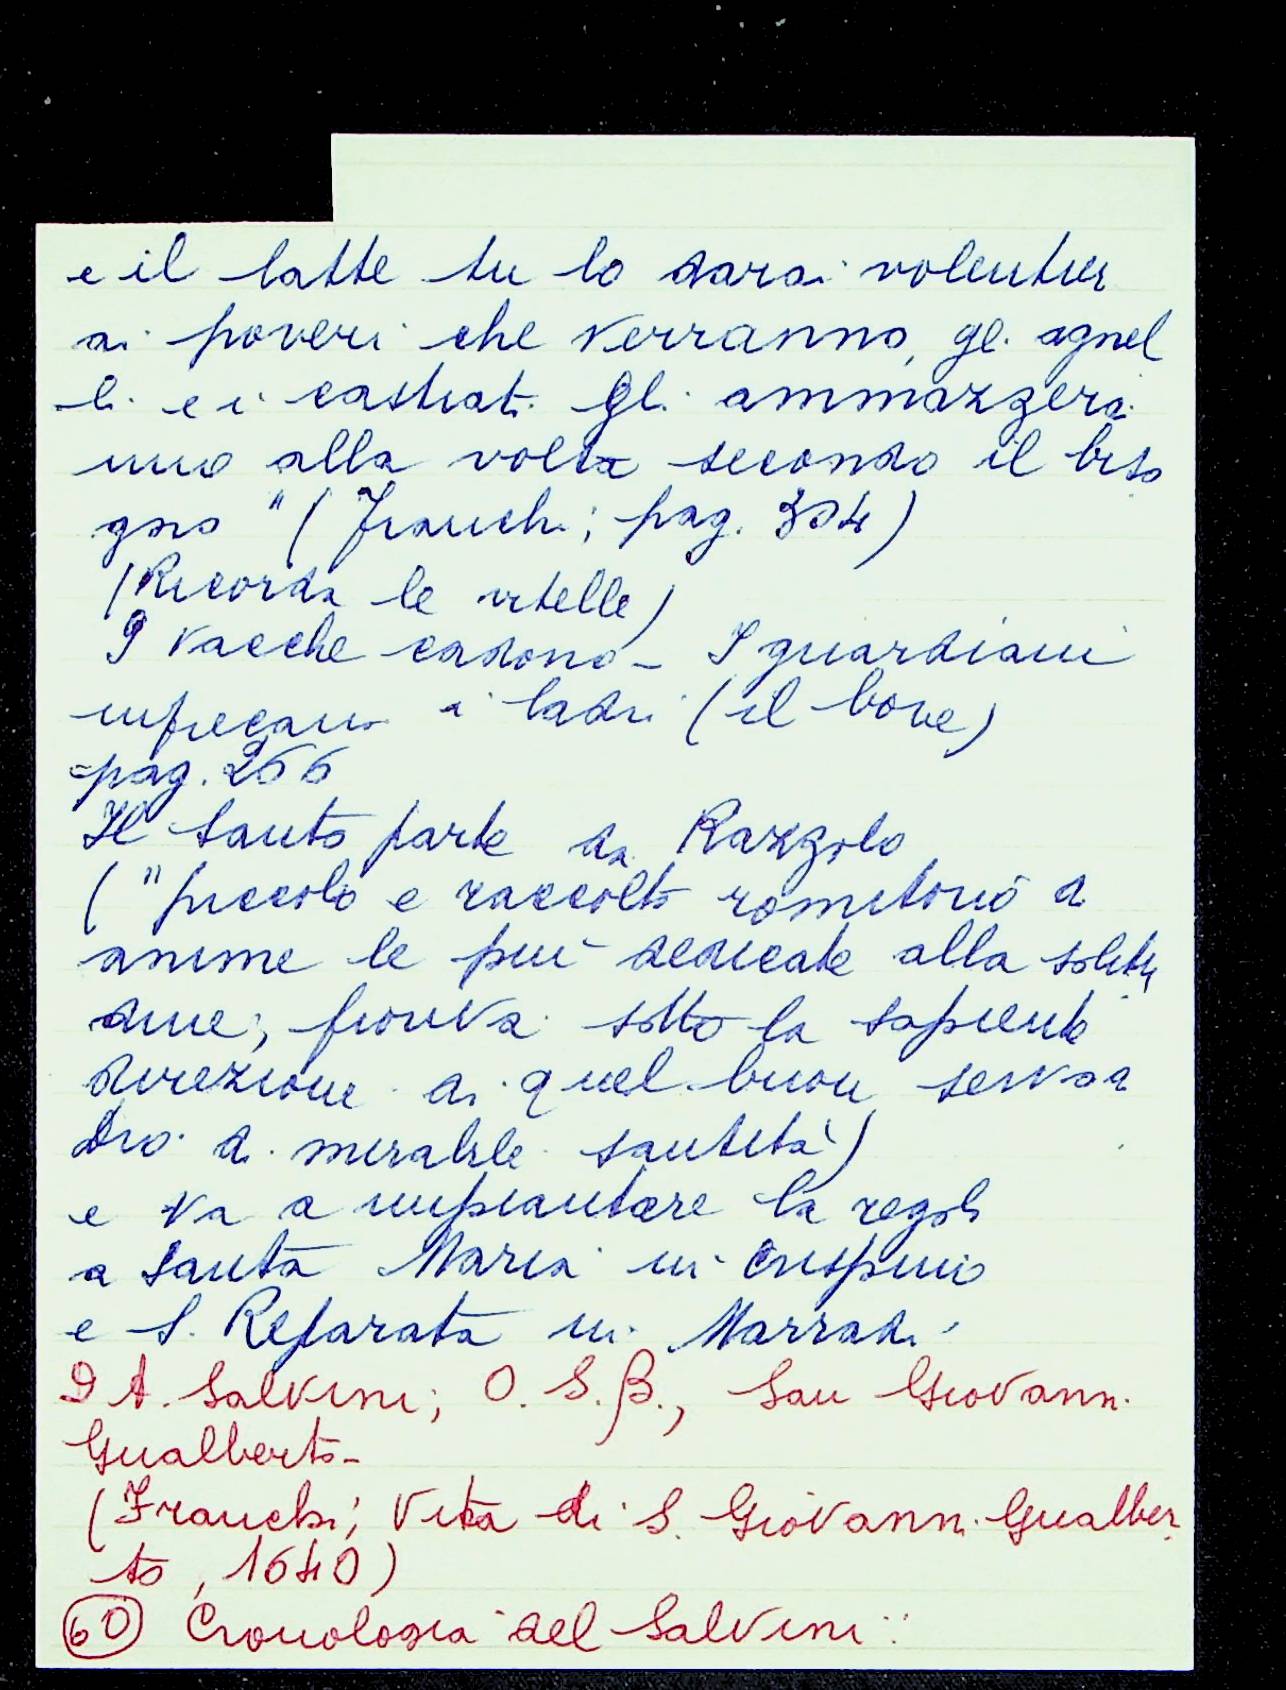 e il latte tu lo darai volentier
ai poveri che verranno, gl. agnel
li. e i castrati gli ammazzerai
uno alla volta secondo il biso
gno" (Franchi; pag. 304)
(Ricorda le vitelle)
9 vacche cadono - I guardiani
i ladri (il bove)
pag. 266
Il Santo parte da Razzolo
("piccolo e raccolto romitorio d
anime le più dedicate alla solitu
dine; fioriva sotto la sapiente
direzione di quel buon servo d
Dio di mirabile santità)
e va a impiantare la regola
a Santa Maria in Crispino
e S. Reparata in Marradi
D A. Salvini; O. S. B., San Giovann.
Gualberto -
(Franchi; Vita di S. Giovann. Gualber
to, 1640)
60 Cronologia del Salvini: